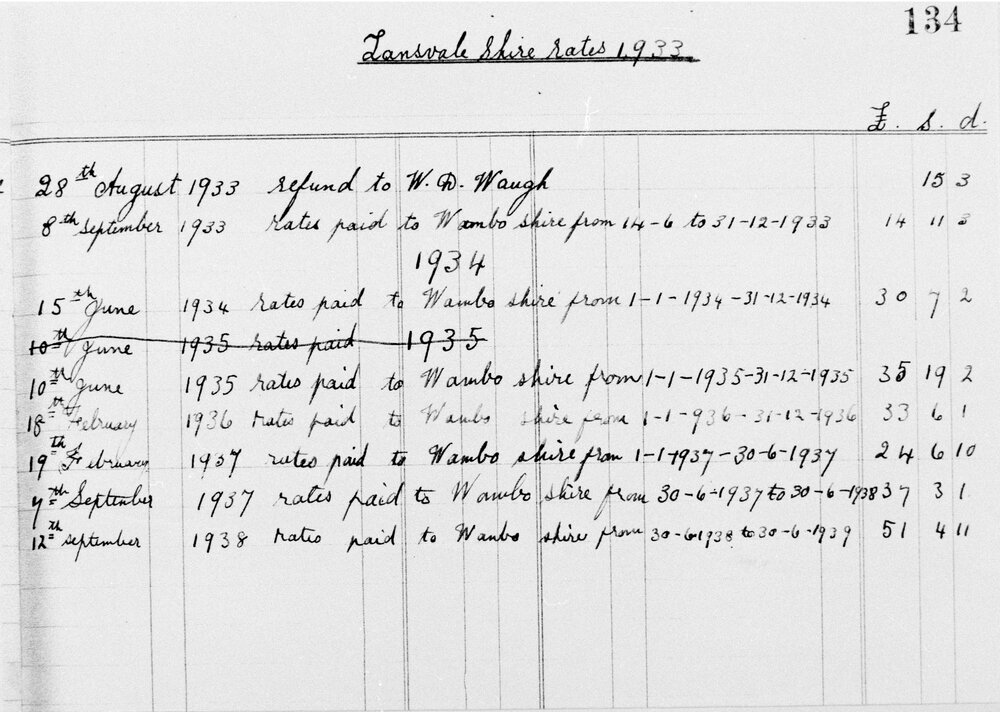 134
Lansvale Shire rates 1933.
£. s. d.
28th August 1933 refund to W. D. Waugh 15 3
8th September 1933 rates paid to Wambo shire from 14-6 to 31-12-1933 14 11 3
1934
15th June 1934 rates paid to Wambo shire from 1-1-1934-31-12-1934 30 7 2
10th June 1935 rates paid 1935
10th June 1935 rates paid to Wambo shire from 1-1-1935-31-12-1935 35 19 2
18th February 1936 rates paid to Wambo shire from 1-1-936-31-12-1936 33 6 1
19th February 1937 rates paid to Wambo shire from 1-1-1937-30-6-1937 24 6 10
7th September 1937 rates paid to Wambo shire from 30-6-1937 to 30-6-1938 37 3 1
12th september 1938 rates paid to Wambo shire from 30-6-1938 to 30-6-1939 51 4 11